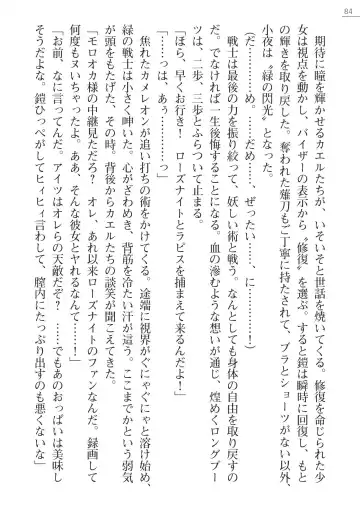 84
期待に瞳を輝かせるカエルたちが、いそいそと世話を焼いてくる。修復を命じられた少
女は視点を動かし、バイザーの表示から〝修復〟を選ぶ。すると鎧は瞬時に回復し、元
の輝きを取り戻した。奪われた薙刀もご丁寧に手渡されて、ブラとショーツがない以外、
小夜は〝緑の閃光〟となった。
(だ……め……。だめ……、ぜったい……、に…………!)
戦士は最後の力を振り絞って、妖しい術と戦う。なんとしても身体の自由を取り戻すの
だ。でなければ、一生後悔することになる。血の滲むような想いが通じ、煌めくロングブー
ツは、二歩、三歩とふらついて止まる。
「ほら、早くお行き! ローズナイトとラピスを捕まえて来るんだよ!」
「……っは、あぅ…………っ」
焦れたカメレオンが追い打ちの術をかけてくる。途端に視界がぐにゃぐにゃと溶け始め、
緑の戦士は小さく呻いた。心がざわめき、背筋を冷たい汗が這う。ここまでかという弱気
が頭をもたげた。その時、背後からカエルたちの談笑が聞こえてきた。
「モロオカ様の中継見ただろ? オレ、あれ以来ローズナイトのファンなんだ。録画して
何度もヌいちゃったよ。ああ、そんな彼女とヤれるなんて……!」
「お前、なに言ってんだ。アイツはオレらの天敵だぞ? ……でもあのおっぱいは美味し
そうだよな。鎧ひっぺがしてヒィヒィ言わして、膣内にたっぷり出すのも悪くないな」